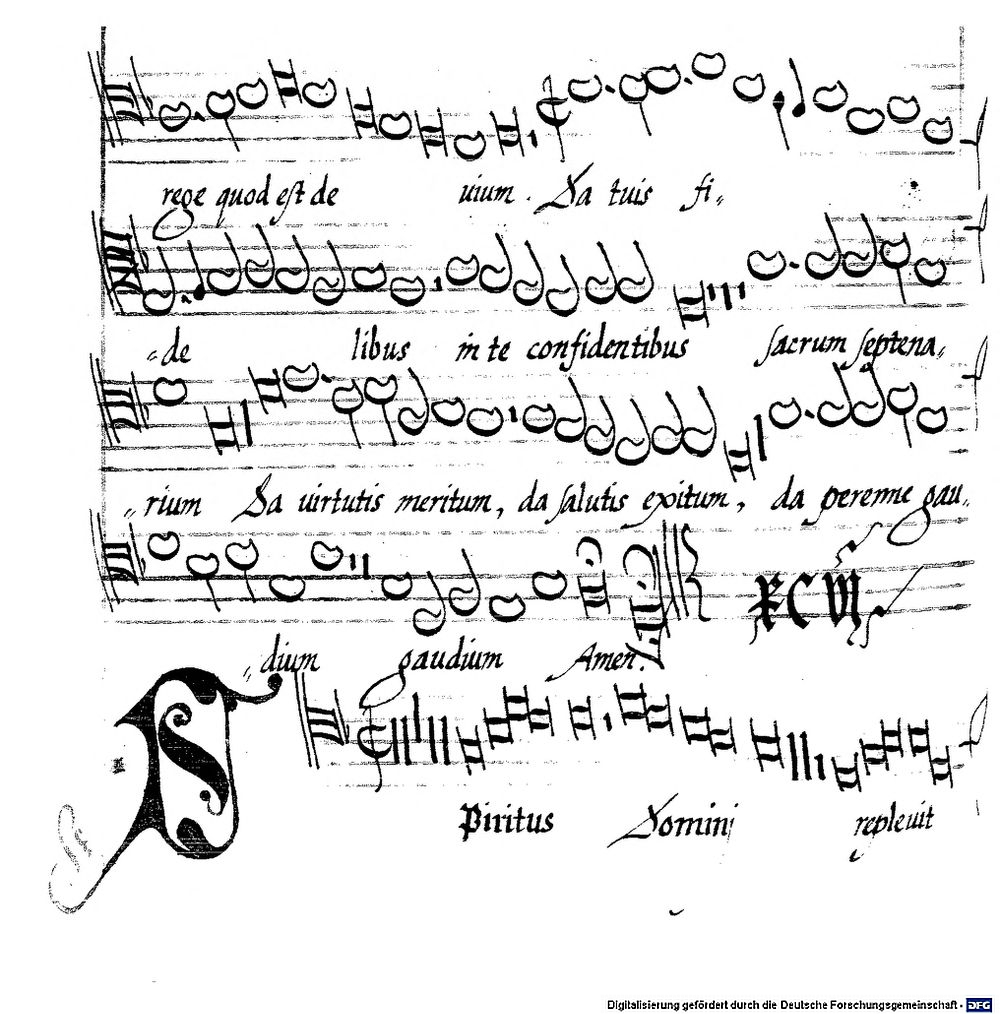 rege quod est de uium. Da tuis fi„
„de libus in te confidentibus sacrum septena„
„rium Da uirtutis meritum, da salutis exitum, da perenne gau„
„dium gaudium Amen. XCVI
S Piritus Domini repleuit
Digitalisierung gefördert durch die Deutsche Forschungsgemeinschaft - DFG